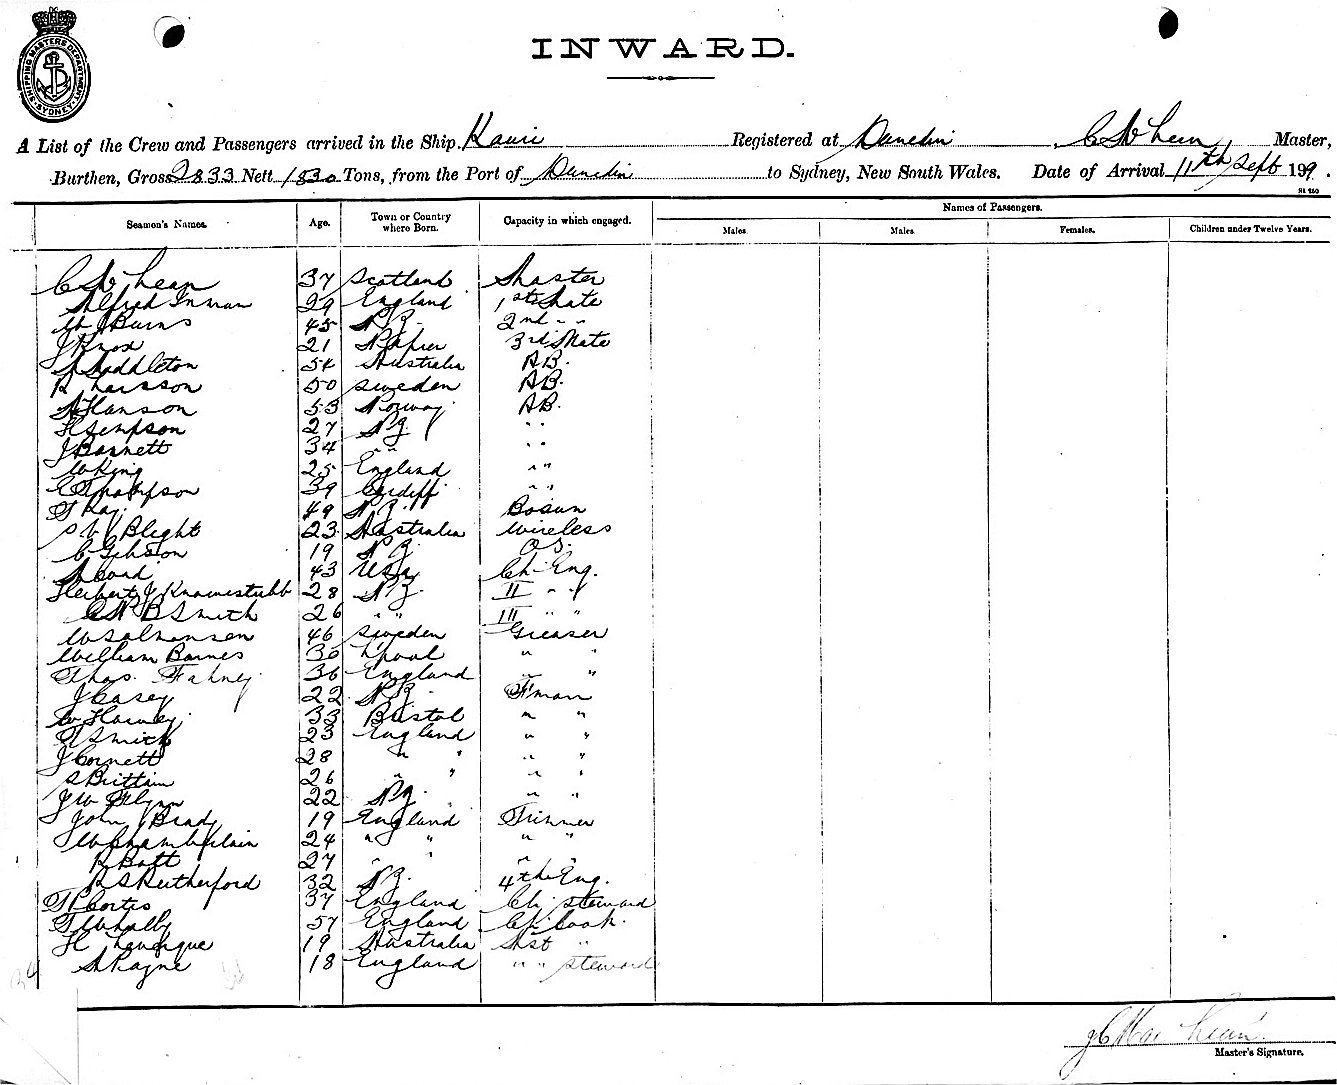 SHIPPING MASTERS DEPARTMENT SYDNEY
INWARD.
A List of the Crew and Passengers arrived in the Ship Kauri Registered at Dunedin Master,
Burthen, Gross 2833 Nett 1830 Tons, from the Port of Dunedin to Sydney, New South Wales. Date of Arrival 11th Sept 199.
Seamen's Names. Age. Town or Country where Born. Capacity in which engaged. Names of Passengers.
Males. Males. Females. Children under Twelve Years.
37 Scotland Master
Alfred Inman 29 England 1st Mate
Burns 45 N.Z. 2nd " "
J Knox 21 Napier 3rd Mate
Middleton 54 Australia AB.
R Larsson 50 Sweden AB.
Hanson 53 Norway AB.
H Simpson 27 N.Z. " "
J Barnett 34 " " " "
W King 25 England " "
Thompson 39 Cardiff " "
49 N.Z. Bosun
Blight 23 Australia Wireless
C Gibson 19 N.Z. O.S.
43 USA Ch. Eng.
Herbert J 28 N.Z. II " "
B Smith 26 " " III " "
46 Sweden Greaser
William Barnes 36 L'pool " "
Thos. Fahey 36 England " "
J Casey 22 N.Z. F'man
33 Bristol " "
Smith 23 England " "
J Cornett 28 " " " "
S Brittain 26 " " " "
J W Flynn 22 N.Z. " "
John Brady 19 England Trimmer
W Chamberlain 24 " " " "
R Batt 27 " " " "
R S Rutherford 32 N.Z. 4th Eng.
37 England Ch. steward
57 England Ch. Cook.
H 19 Australia Asst "
Payne 18 England " " steward
34
Master's Signature.